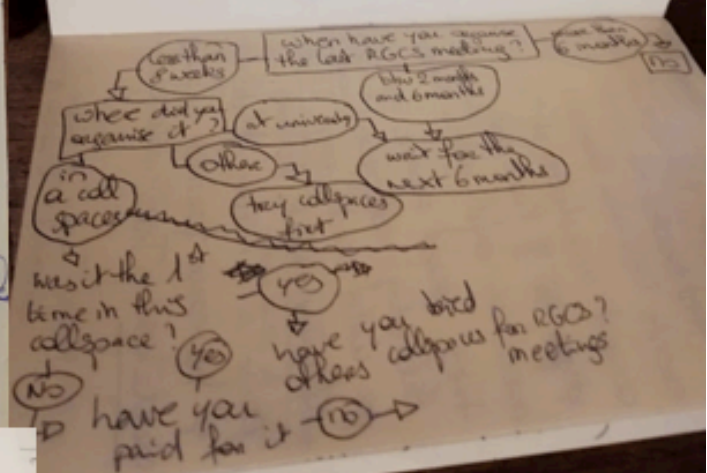 when have you organise
the last RGCS meeting?
less than
8 weeks
more than
6 months
no
btw 2 months
and 6 months
whee did you
organise it?
at university
other
wait for the
next 6 months
in
a coll
spaces
try collspaces
first
was it the 1st
time in this
collspace?
yes
have you tried
others collspaces for RGCS?
meetings
Yes
No
have you
paid for it
no